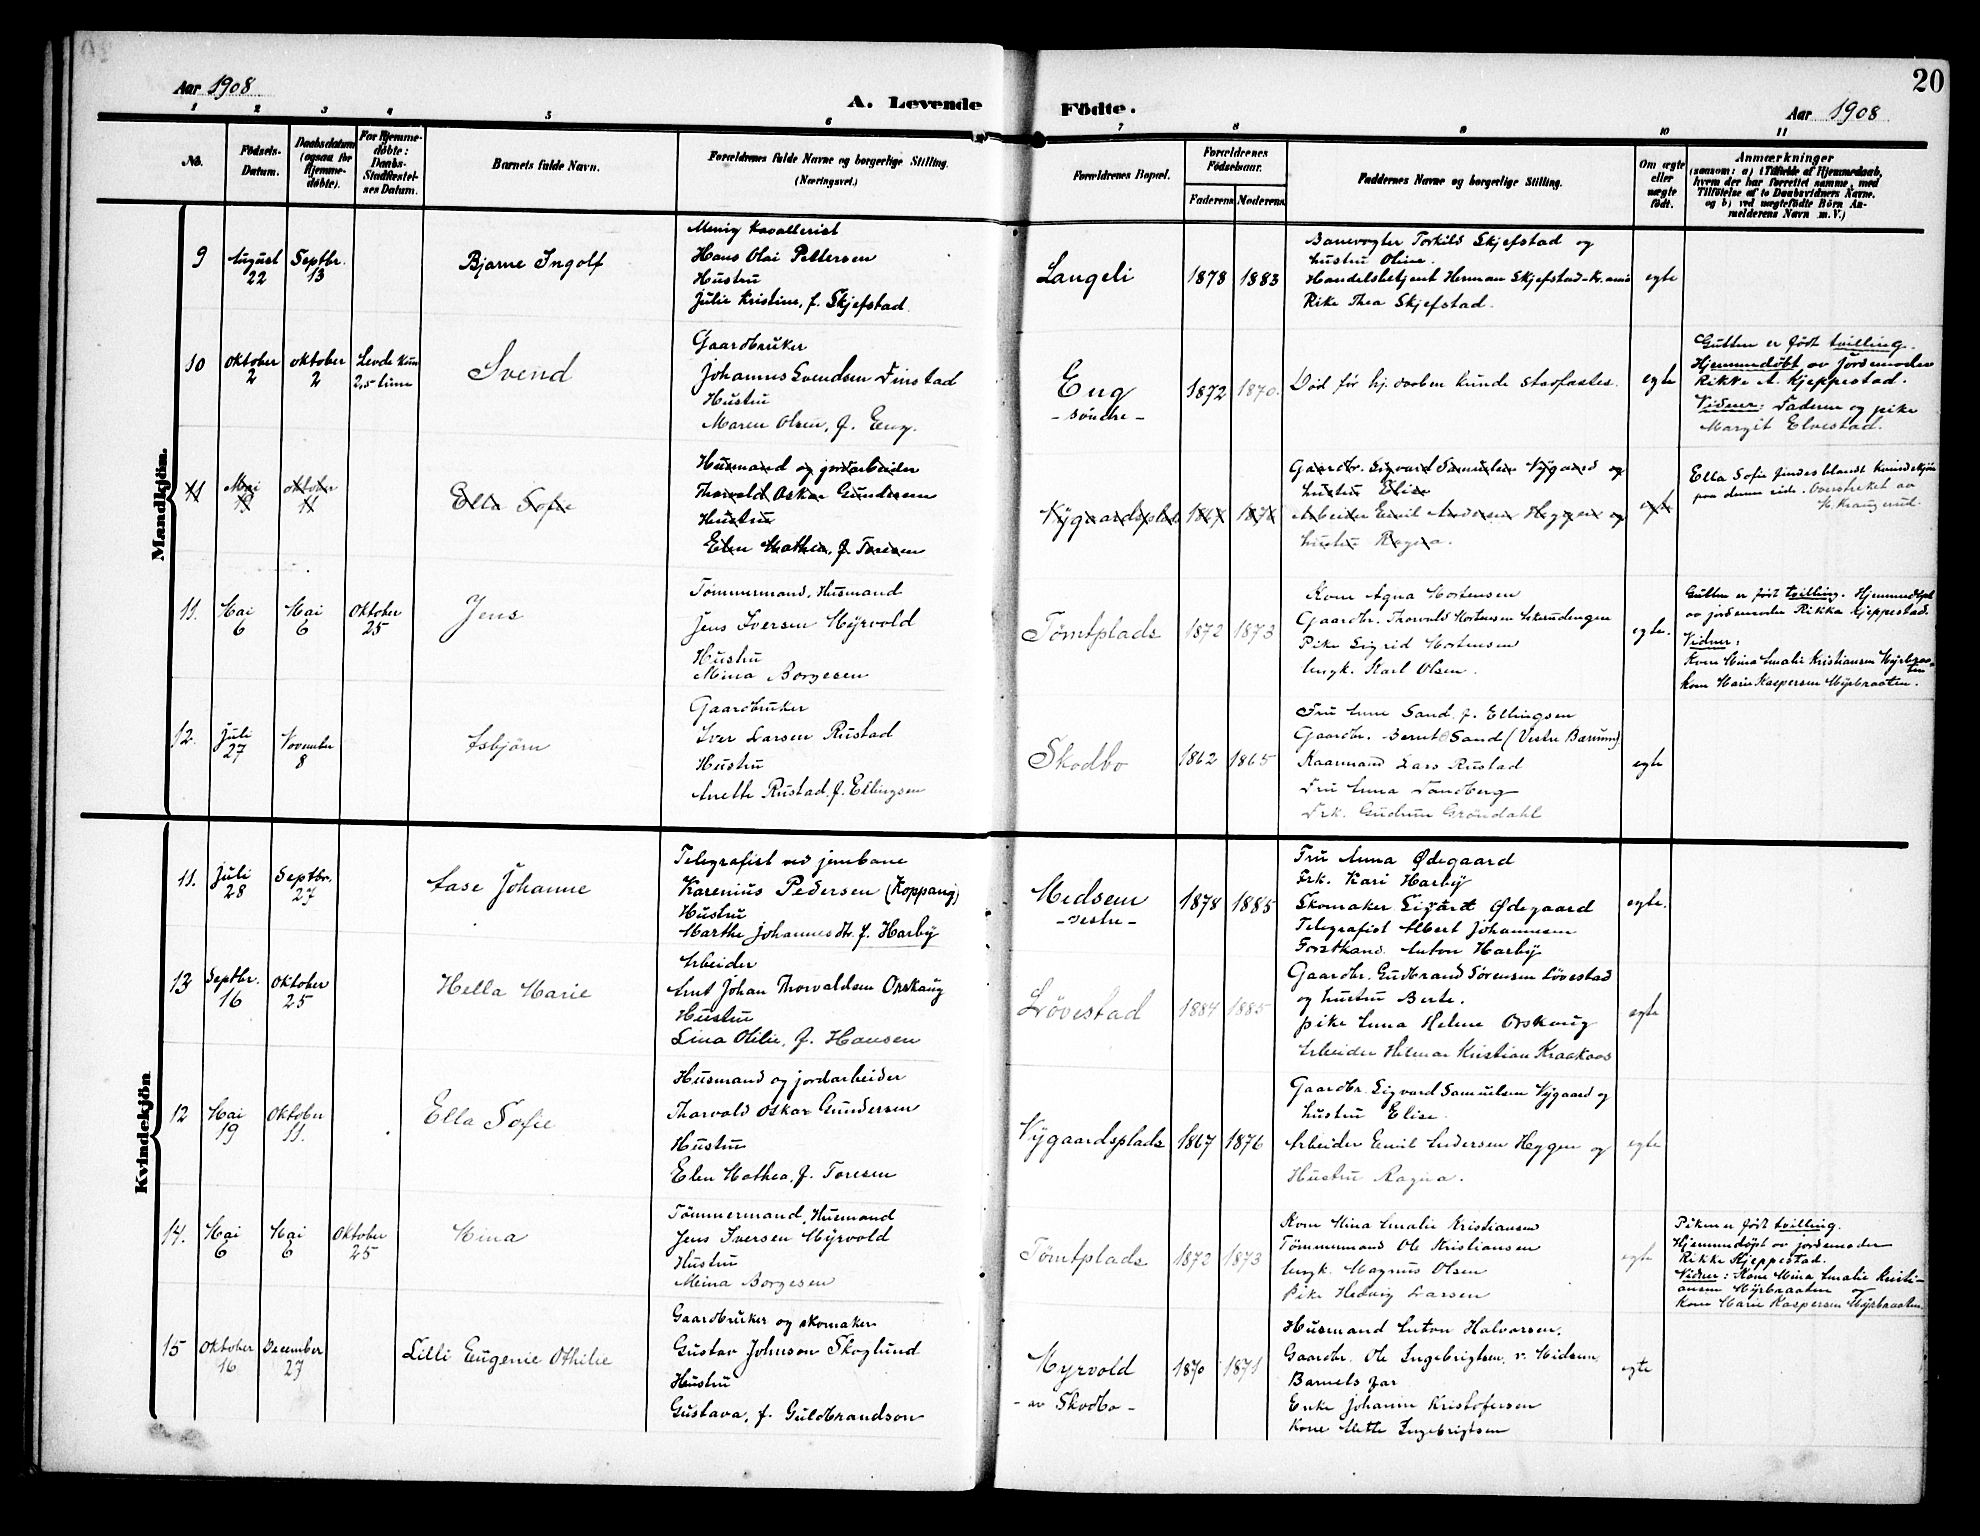 Aar 1908
A. Levende Födte.
Aar 1908
20
1 2 3 4 5 6 7 8 9 10 11
No.
Födsels-Datum.
Daabsdatum (ogsaa for Hjemme-döbte).
For Hjemme-döbte: Daabs-Stadfæstel-ses Datum.
Barnets fulde Navn.
Forældrenes fulde Navne og borgerlige Stilling. (Næringsvei.)
Forældrenes Bopæl.
Forældrenes Födselsaar.
Faderens Moderens
Faddernes Navne og borgerlige Stilling.
Om ægte eller uægte födt.
Anmærkninger
(saasom: a) i Tilfælde af Hjemmedaab,
hvem der har forrettet samme, med
Tilföielse af to Daabsvidners Navne.
og b) ved uægtefödte Börn An-
melderens Navn m. V.)
Mandkjön.
9
August 22
Septbr. 13
Bjarne Ingolf
Menig kavallerist
Hans Olai Pettersen
Hustru
Julie Kristine, f. Skjefstad
Langeli
1878 1883
Banevogter Torkild Skjefstad og
hustru Oline.
Handelsbetjent Herman Skjefstad - Kr.ania
Rike Thea Skjefstad.
egte
10
Oktober 2
Oktober 2
Levde kun 2,5 time
Svend
Gaardbruker
Johannes Svendsen Finstad
Hustru
Maren Olsen, f. Eng.
Eng
- söndre -
1872 1870.
Död før hj. daaben kunde stadfæstes.
egte
Gutten er födt tvilling.
Hjemmedøbt av Jordemoder
Rikke A. Kjeppestad.
Vidner: Faderen og pike
Margit Elvestad.
11
Mai 19
Oktober 11
Ella Sofie
Husmand og jordarbeider
Thorvald Oskar Gundersen
Hustru
Elen Mathea, f. Toresen
Nygaardsplads
1867 1876
Gaardbr. Sigvard Samuelsen Nygaard og
hustru Elise
Arbeider Emil Andersen Heggen og
hustru Ragna.
egte
Ella Sofie findes blandt kvindekjön
paa denne side. Overstrøket av
H. Krangerud.
11.
Mai 6
Mai 6
Oktober 25
Jens
Tømmermand, Husmand
Jens Iversen Myrvold
Hustru
Mina Borgesen
Tømtplads
1872 1873
Kone Agna Mortensen
Gaardbr. Thorvald Mortensen Skrudengen
Pike Sigrid Mortensen
Ungk. Karl Olsen.
egte.
Gutten er født tvilling. Hjemmedöpt
av jordemoder Rikka Kjeppestad.
Vidner:
Kone Mina Amalie Kristiansen Myrbraa-
ten
Kone Marie Kaspersen Myrbraaten.
12.
Juli 27
November 8
Asbjörn
Gaardbruker
Iver Larsen Rustad
Hustru
Anette Rustad, f. Ellingsen
Skodbo
1862 1865
Fru Anne Sand f. Ellingsen
Gaardbr. Bernt Sand (Vestre Bærum)
Kaarmand Lars Rustad
Fru Anna Sandberg
Frk. Gudrun Gröndahl
egte
Kvindekjön
11.
Juli 28
Septbr. 27
Aase Johanne
Telegrafist ved jernbane
Karenius Pedersen (Koppang)
Hustru
Marthe Johannesdtr. f. Harby
Midsem
- vestre -
1878 1885
Fru Anna Ødegaard
Frk. Kari Harby
Skomaker Sigard Ødegaard
Telegrafist Albert Johannesen
Forstkand. Anton Harby
egte.
13
Septbr. 16
Oktober 25
Hella Marie
Arbeider
Arnt Johan Thorvaldsen Orskaug
Hustru
Lina Otilie, f. Hansen
Lövestad
1884 1885
Gaardbr. Gudbrand Sörensen Lövestad
og hustru Berte.
pike Anna Helene Orskaug
Arbeider Helmar Kristian Kraakaas
egte
12
Mai 19
Oktober 11.
Ella Sofie
Husmand og jordarbeider
Thorvald Oskar Gundersen
Hustru
Elen Mathea, f. Toresen
Nygaardsplads
1867 1876
Gaardbr. Sigvard Samuelsen Nygaard og
hustru Elise.
Arbeider Emil Andersen Heggen og
Hustru Ragna.
egte
14.
Mai 6
Mai 6
Oktober 25
Mina
Tömmermand, Husmand
Jens Iversen Myrvold
Hustru
Mina Borgesen
Tømtplads
1872 1873
Kone Mina Amalie Kristiansen
Tömmermand Ole Kristiansen
Ungk. Magnus Olsen
Pike Hedvig Larsen
egte
Piken er født tvilling.
Hjemmedöpt av jordemoder
Rikke Kjeppestad.
Vidner: Kone Mina Amalie Kristi-
ansen Myrbraaten og
Kone Marie Kaspersen Myrbraaten.
15
Oktober 16
December 27
Lilli Eugenie Othilie
Gaardbruker og skomaker
Gustav Johnson Skoglund
Hustru
Gustava, f. Guldbrandson
Myrvold
- av Skodbo -
1870 1871
Husmand Anton Halvorsen.
Gaardbr. Ole Ingebrigtsen, v. Midsem.
Barnets far
Enke Johanne Kristofersen
Kone Mette Ingebrigtsen
egte